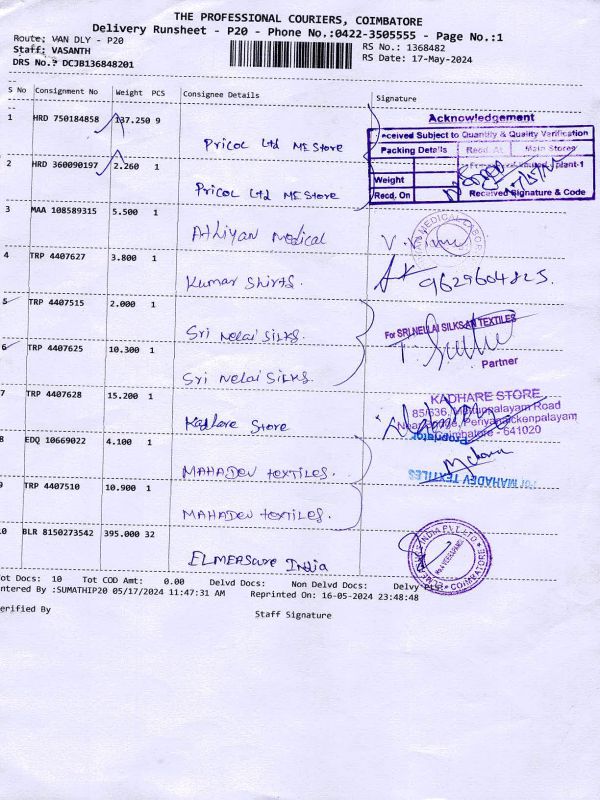 THE PROFESSIONAL COURIERS, COIMBATORE
Delivery Runsheet - P20 - Phone No.:0422-3505555 - Page No.:1
Route: VAN DLY - P20
RS No.: 1368482
Staff: VASANTH
RS Date: 17-May-2024
DRS No.? DCJB136848201
S No Consignment No Weight PCS Consignee Details Signature
1 HRD 750184858 137.250 9
Pricol Ltd ME Store
Acknowledgement
eceived Subject to Quantity & Quality Verification
Packing Details Recd. At Main Stores
plant-1
Weight
Recd. On Received Signature & Code
2 HRD 360090197 2.260 1
Pricol Ltd ME Store
3 MAA 108589315 5.500 1
Athiyan Medical
4 TRP 4407627 3.800 1
Kumar Shirts.
9629604825.
5 TRP 4407515 2.000 1
Sri Nelai Silks.
For SRI NELLAI SILKS AN TEXTILES
Partner
6 TRP 4407625 10.300 1
Sri Nelai Silks.
7 TRP 4407628 15.200 1
Kadhare Store
KADHARE STORE
85/636, Mettuppalayam Road
Periyanaickenpalayam
Coimbatore - 641020
Proprietor
8 EDQ 10669022 4.100 1
MAHADEV textiles.
For MAHADEV TEXTILES
9 TRP 4407510 10.900 1
MAHADEV textiles.
0 BLR 8150273542 395.000 32
ELMEASURE India
COIMBATORE
ot Docs: 10 Tot COD Amt: 0.00 Delvd Docs: Non Delvd Docs:
ntered By :SUMATHIP20 05/17/2024 11:47:31 AM Reprinted On: 16-05-2024 23:48:48
erified By
Staff Signature